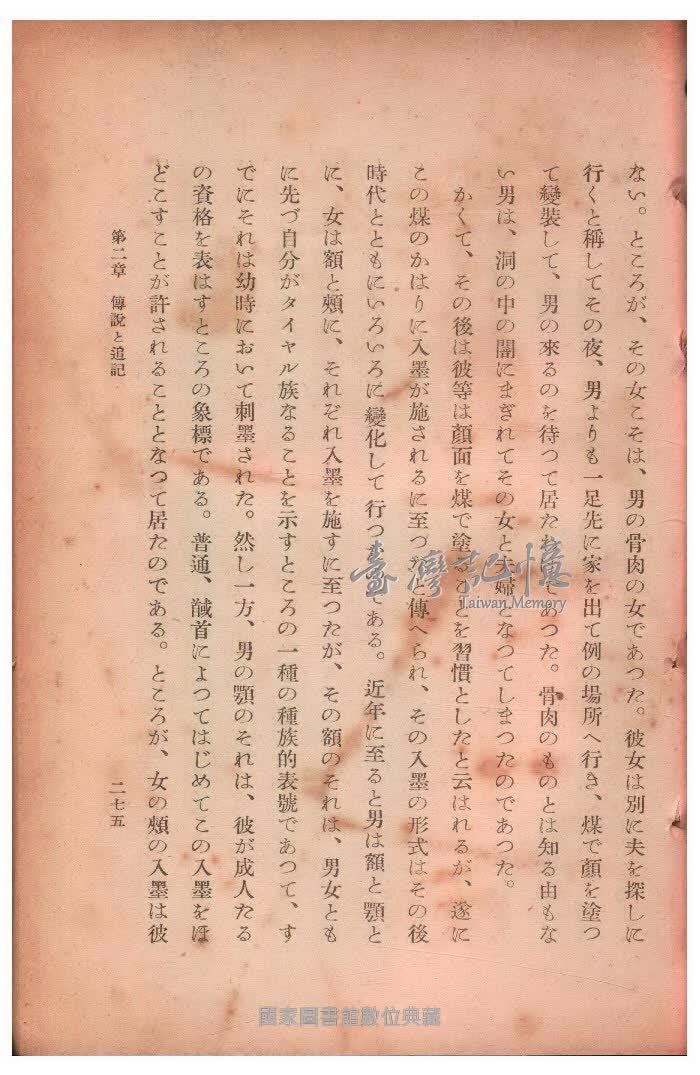 ない。ところが、その女こそは、男の骨肉の女であつた。彼女は別に夫を探しに
行くと稱してその夜、男よりも一足先に家を出て例の場所へ行き、煤で顔を塗つ
て變裝して、男の來るのを待つて居た であつた。骨肉のものとは知る由もな
い男は、洞の中の闇にまぎれてその女と夫婦となつてしまつたのであつた。
かくて、その後は彼等は顔面を煤で塗ることを習慣としたと云はれるが、遂に
この煤のかはりに入墨が施されるに至つたと傳へられ、その入墨の形式はその後
時代とともにいろいろに變化して行つたのである。近年に至ると男は額と顎と
に、女は額と頰に、それぞれ入墨を施すに至つたが、その額のそれは、男女とも
に先づ自分がタイヤル族なることを示すところの一種の種族的表號であつて、す
でにそれは幼時において刺墨された。然し一方、男の顎のそれは、彼が成人たる
の資格を表はすところの象標である。普通、馘首によつてはじめてこの入墨をほ
どこすことが許されることとなつて居たのである。ところが、女の頰の入墨は彼
第二章 傳說と追記
二七五
臺灣記憶
Taiwan Memory
國家圖書館數位典藏